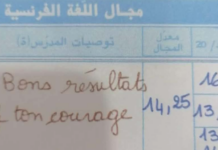 مجال اللغة الفرنسية
توصيات المدرس(ة)
معدل المجال
20 /
Bons résultats
ton courage
14,25
16
13,
13